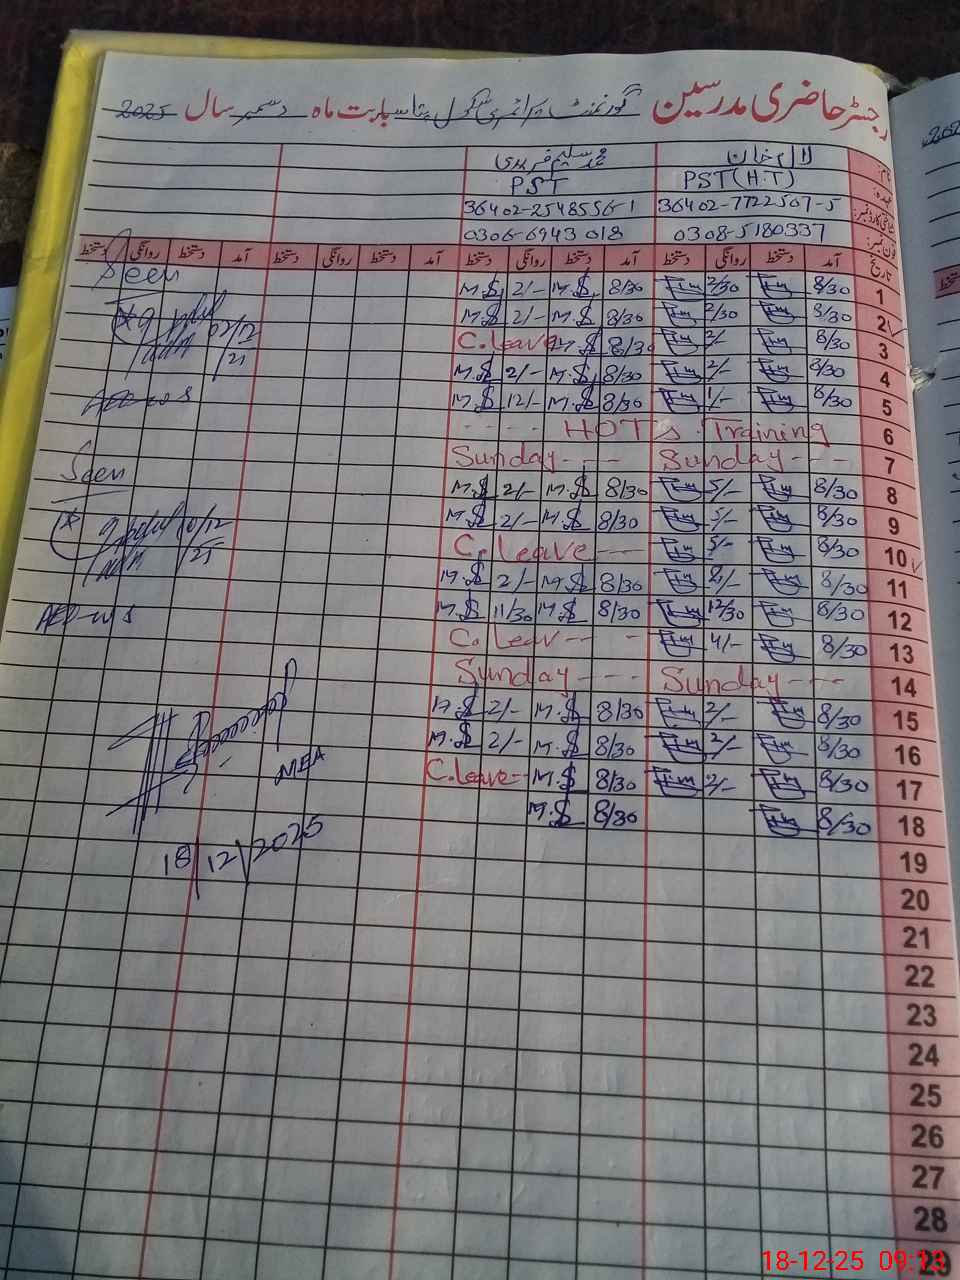 رجسٹر حاضری مدرسین گورنمنٹ پرائمری سکول بابت ماہ دسمبر سال 2025
نام: لال خان محمد سلیم فریدی
عہدہ: PST (H.T) PST
شناختی کارڈ نمبر: 36402-7722507-5 36402-2548556-1
فون نمبر: 0308-5180337 0306-6943018
تاریخ آمد دستخط روانگی دستخط آمد دستخط روانگی دستخط آمد دستخط روانگی دستخط آمد دستخط روانگی دستخط
1 8/30 2/30 8/30 M.S 2/- M.S
2 8/30 2/30 8/30 M.S 2/- M.S
3 8/30 2/- 8/30 M.S C.leave
4 8/30 2/- 8/30 M.S 2/- M.S
5 8/30 1/- 8/30 M.S 12/- M.S
6 - - - - HOT's Training
7 Sunday - - - Sunday - - -
8 8/30 5/- 8/30 M.S 2/- M.S
9 8/30 5/- 8/30 M.S 2/- M.S
10 8/30 5/- C. Leave - - -
11 8/30 8/30 M.S 2/- M.S
12 8/30 12/30 8/30 M.S 11/30 M.S
13 8/30 4/- C. Leav - - -
14 Sunday - - - Sunday - - -
15 8/30 2/- 8/30 M.S 2/- M.S
16 8/30 2/- 8/30 M.S 2/- M.S
17 8/30 2/- 8/30 M.S C.leave--
18 8/30 8/30 M.S
19
20
21
22
23
24
25
26
27
28
29
Seen
02/12
21
Seen
10/12
25
AEO-W S
MEA
18/12/2025
18-12-25 09:13